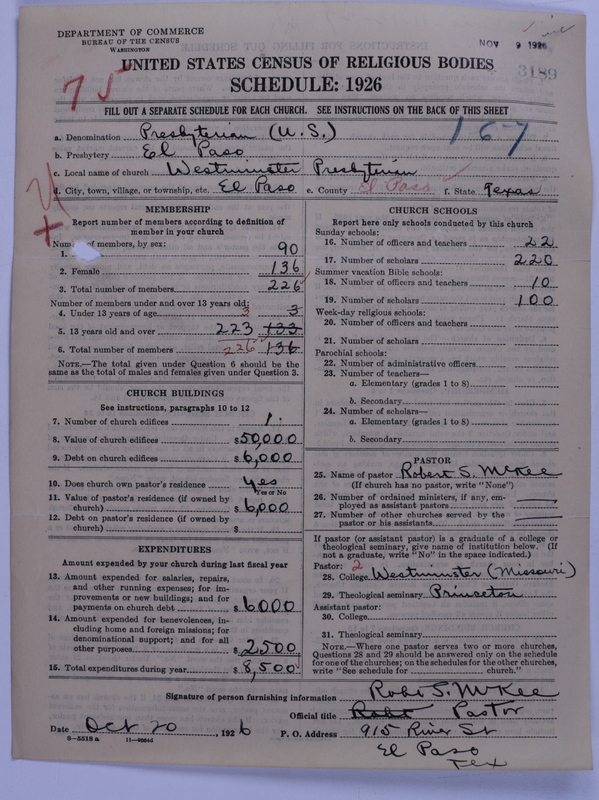 DEPARTMENT OF COMMERCE
BUREAU OF THE CENSUS
WASHINGTON
NOV 9 1926
3189
UNITED STATES CENSUS OF RELIGIOUS BODIES
SCHEDULE: 1926
75
FILL OUT A SEPARATE SCHEDULE FOR EACH CHURCH. SEE INSTRUCTIONS ON THE BACK OF THIS SHEET
a. Denomination Presbyterian (U.S.)
167
b. Presbytery El Paso
c. Local name of church Westminster Presbyterian
d. City, town, village, or township, etc. El Paso e. County El Paso f. State Texas
MEMBERSHIP
Report number of members according to definition of
member in your church
Number of members, by sex:
1. 90
2. Female 136
3. Total number of members 226
Number of members under and over 13 years old:
4. Under 13 years of age 3 3
5. 13 years old and over 223 133
6. Total number of members 226 136
NOTE.—The total given under Question 6 should be the
same as the total of males and females given under Question 3.
CHURCH BUILDINGS
See instructions, paragraphs 10 to 12
7. Number of church edifices 1.
8. Value of church edifices $50,000
9. Debt on church edifices $6,000
10. Does church own pastor's residence yes
Yes or No
11. Value of pastor's residence (if owned by
church) $6,000
12. Debt on pastor's residence (if owned by
church) $
EXPENDITURES
Amount expended by your church during last fiscal year
13. Amount expended for salaries, repairs,
and other running expenses; for im-
provements or new buildings; and for
payments on church debt $6000
14. Amount expended for benevolences, in-
cluding home and foreign missions; for
denominational support; and for all
other purposes $2500
15. Total expenditures during year $8,500
CHURCH SCHOOLS
Report here only schools conducted by this church
Sunday schools:
16. Number of officers and teachers 22
17. Number of scholars 220
Summer vacation Bible schools:
18. Number of officers and teachers 10
19. Number of scholars 100
Week-day religious schools:
20. Number of officers and teachers
21. Number of scholars
Parochial schools:
22. Number of administrative officers
23. Number of teachers—
a. Elementary (grades 1 to 8)
b. Secondary
24. Number of scholars—
a. Elementary (grades 1 to 8)
b. Secondary
PASTOR
25. Name of pastor Robert S. McKee
(If church has no pastor, write "None")
26. Number of ordained ministers, if any, em-
ployed as assistant pastors
27. Number of other churches served by the
pastor or his assistants
If pastor (or assistant pastor) is a graduate of a college or
theological seminary, give name of institution below. (If
not a graduate, write "No" in the space indicated.)
Pastor: 2
28. College Westminster (Missouri)
29. Theological seminary Princeton
Assistant pastor:
30. College
31. Theological seminary
NOTE.—Where one pastor serves two or more churches,
Questions 28 and 29 should be answered only on the schedule
for one of the churches; on the schedules for the other churches,
write "See schedule for church."
Signature of person furnishing information Robt S. McKee
Official title Robt Pastor
Date Oct 20, 1926 P. O. Address 915 River St
El Paso
Tex
8—5518 a